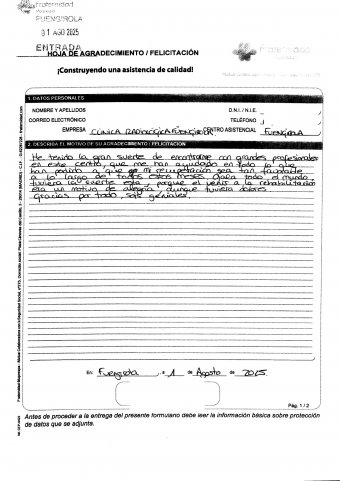 fraternidad
FUENGIROLA
01 AGO 2025
ENTRADA
HOJA DE AGRADECIMIENTO / FELICITACIÓN
fraternidad
¡Construyendo una asistencia de calidad!
1. DATOS PERSONALES
NOMBRE Y APELLIDOS
D.N.I./N.I.E.
CORREO ELECTRÓNICO
TELÉFONO
EMPRESA CLINICA RADIOLÓGICA FUENGIROLA CENTRO ASISTENCIAL FUENGIROLA
2. DESCRIBA EL MOTIVO DE SU AGRADECIMIENTO / FELICITACIÓN
He tenido la gran suerte de encontrarme con grandes profesionales
en este centro, que me han ayudado en todo lo que
han podido a que mi recuperación sea tan favorable
a lo largo de todos estos meses. Ojalá todo el mundo
tuviera la suerte esta, porque el venir a la rehabilitación
era un motivo de alegría, aunque tuviera dolores.
Gracias por todo, sois geniales.
En Fuengirola, a 1 de Agosto de 2025
Pág. 1 / 2
Antes de proceder a la entrega del presente formulario debe leer la información básica sobre protección
de datos que se adjunta.